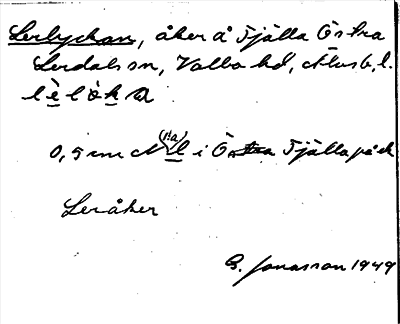 Lerlyckan, åker å Fjälla Östra
Lerdals sn, Valbo hd, Älvsb. l.
lèlòka
0,5 km N (Ha) l i Östra Fjälla på ck
Leråker
G. Jonasson 1949